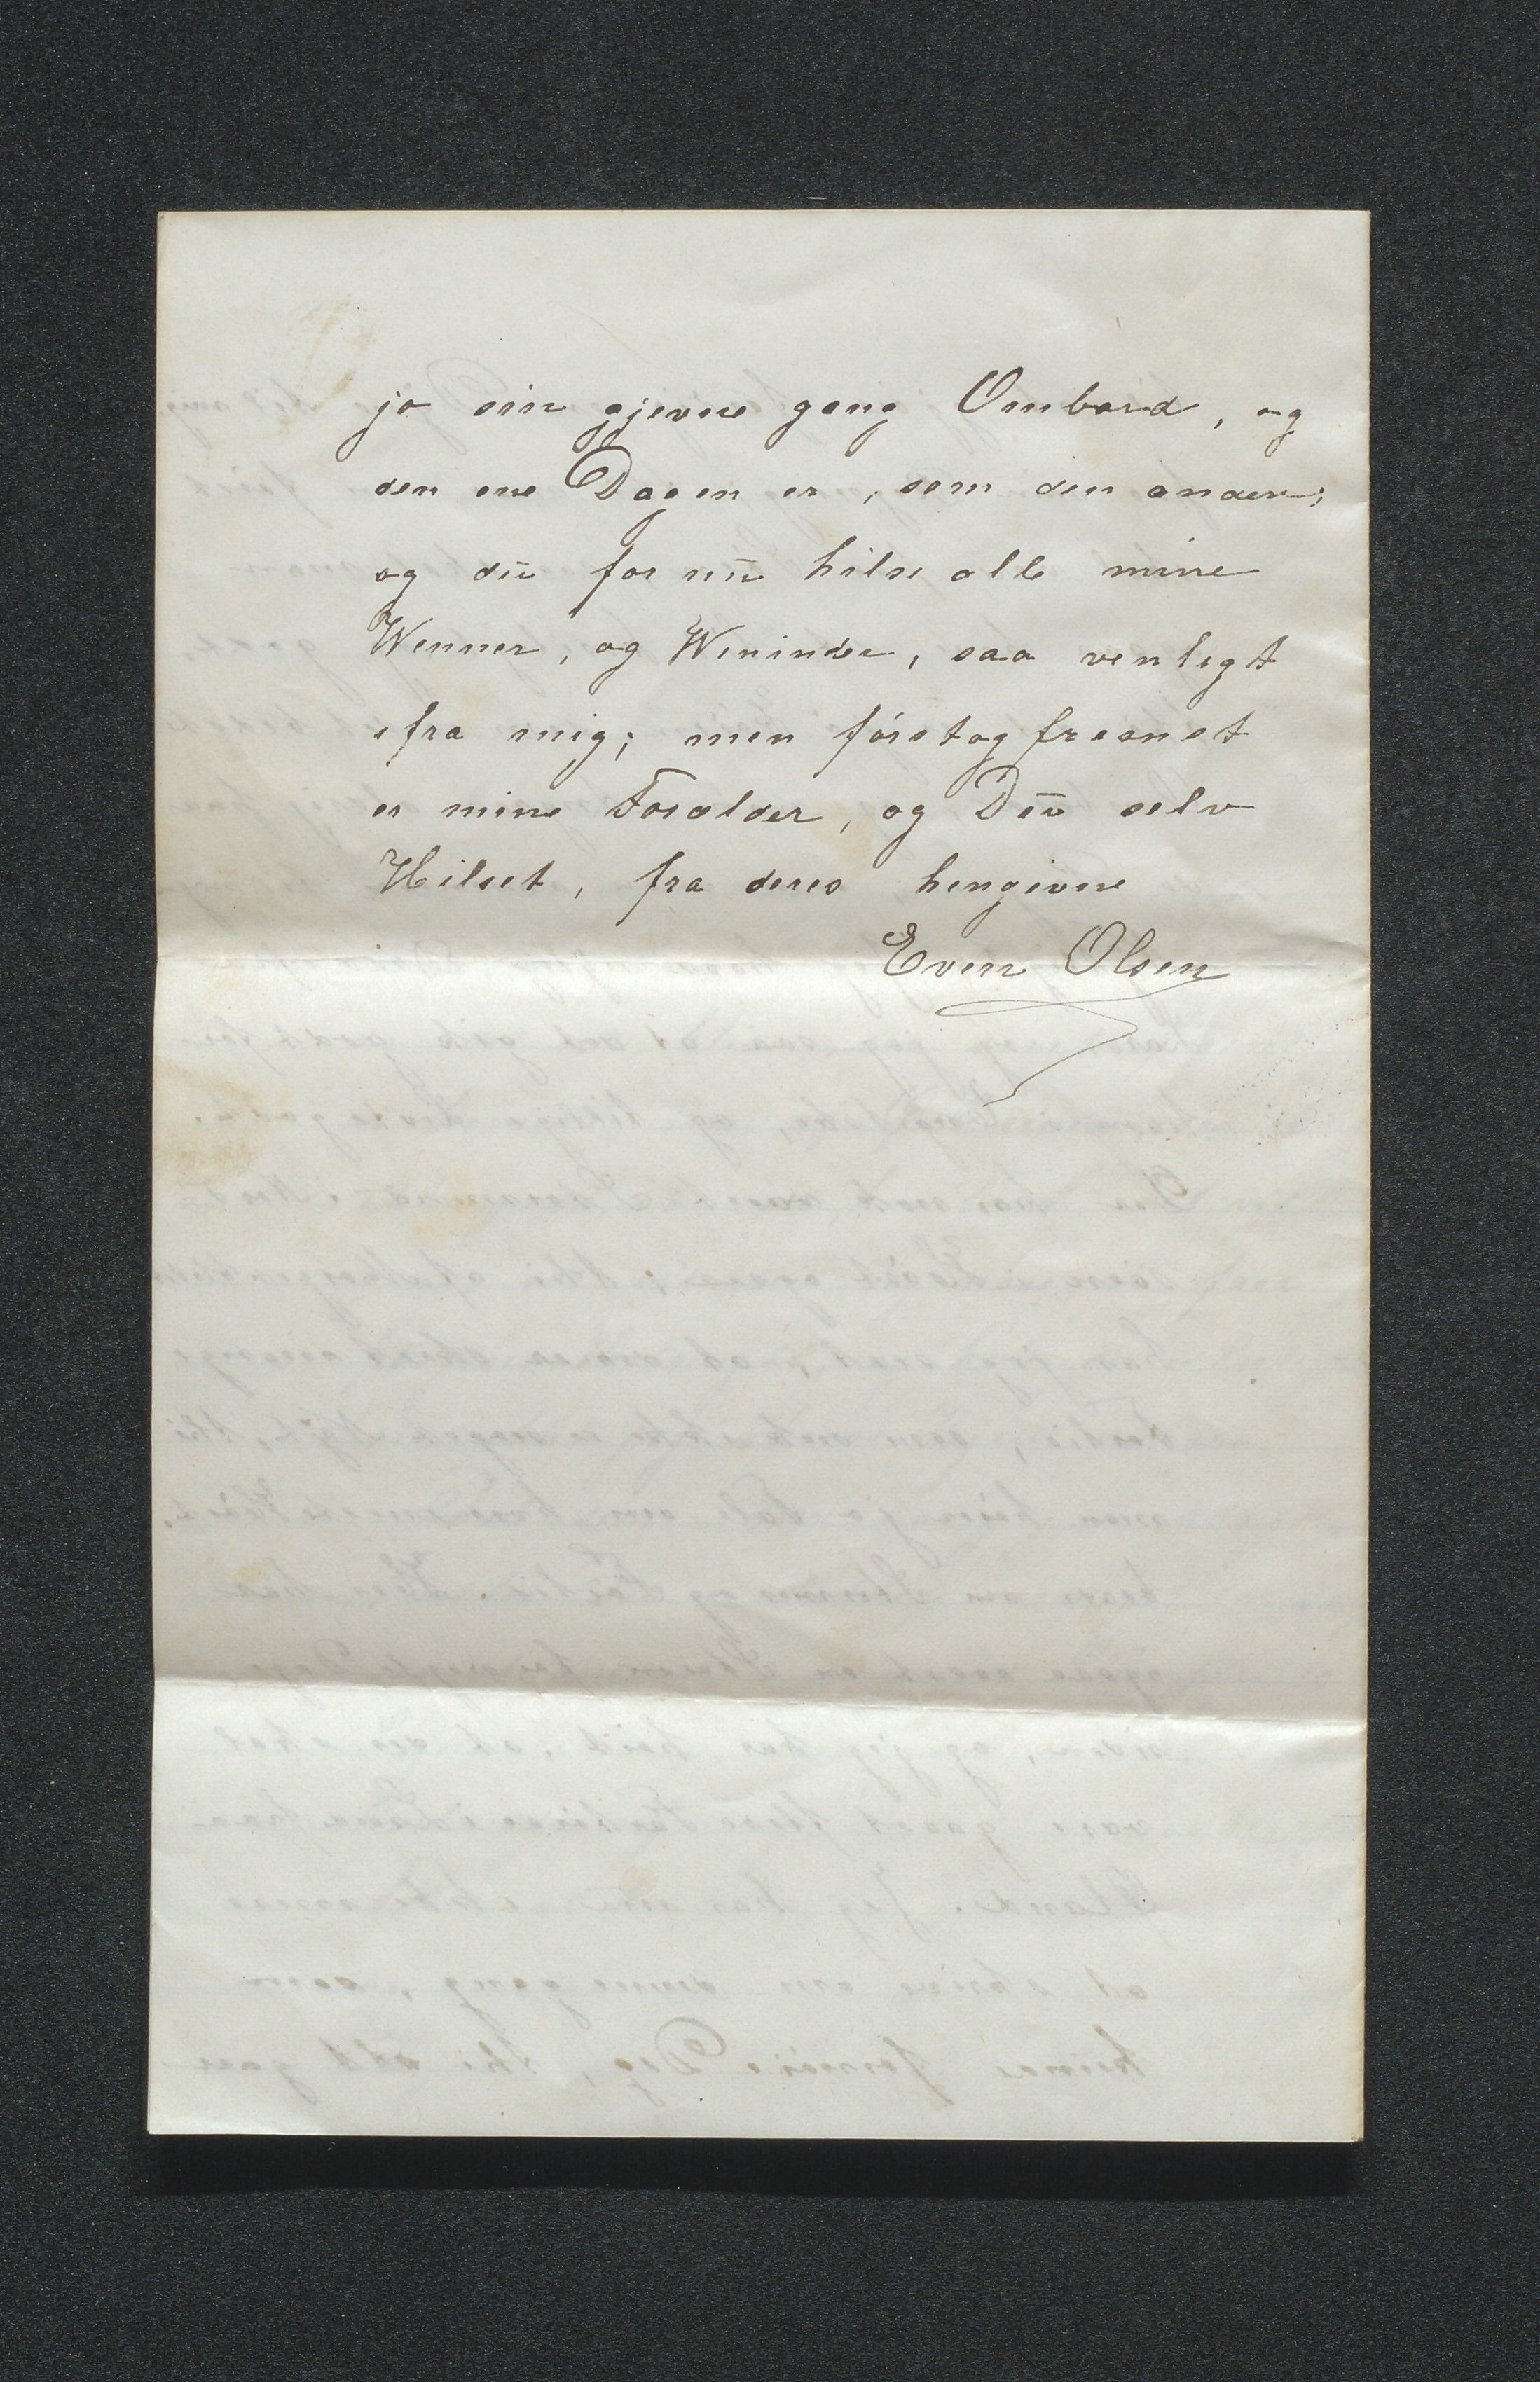 jo sin gjevne gang Ombord, og
den ene Dagen er, som den anden;
og du for nu hilse alle mine
Wenner, og Weninder, saa venligt
ifra mig; men først og fremst
er mine Forælder, og Du selv
Hilset, fra deres hengivne
Even Olsen